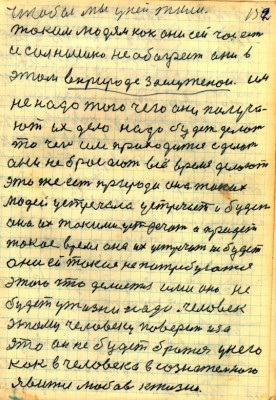 чтобы мы у ней жили.
таким людям как они ей чахнет
и солнышко не обогреет они в
этом в природе заслуженой. им
не надо того чего они получа
ют их дело надо будет делат
то чем им приходится сделат
они не бросают всё время делают
это же ест природа она таких
людей устречала устречает и будет
она их такими устречат и придет
такое время она их устречат не будет
они ей такие не потребуются
этого что делается ими оно не
будет у жизни надо. человек
этому человеку поверит и за
это он не будет братся у него
как в человека в сознателного
явится любов к жизни.